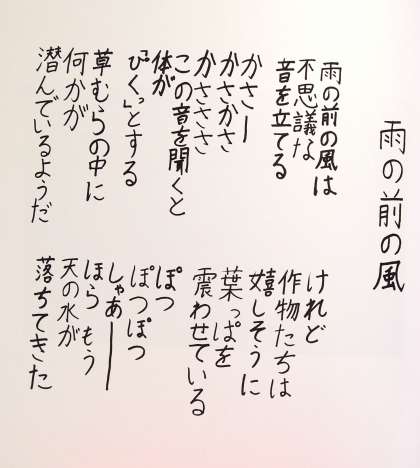 雨の前の風
雨の前の風は
不思議な
音を立てる
かさー
かさかさ
かさささ
この音を聞くと
体が
「びくっ」とする
草むらの中に
何かが
潜んでいるようだ
けれど
作物たちは
嬉しそうに
葉っぱを
震わせている
ぽつ
ぽつぽつ
しゃあー
ほらもう
天の水が
落ちてきた